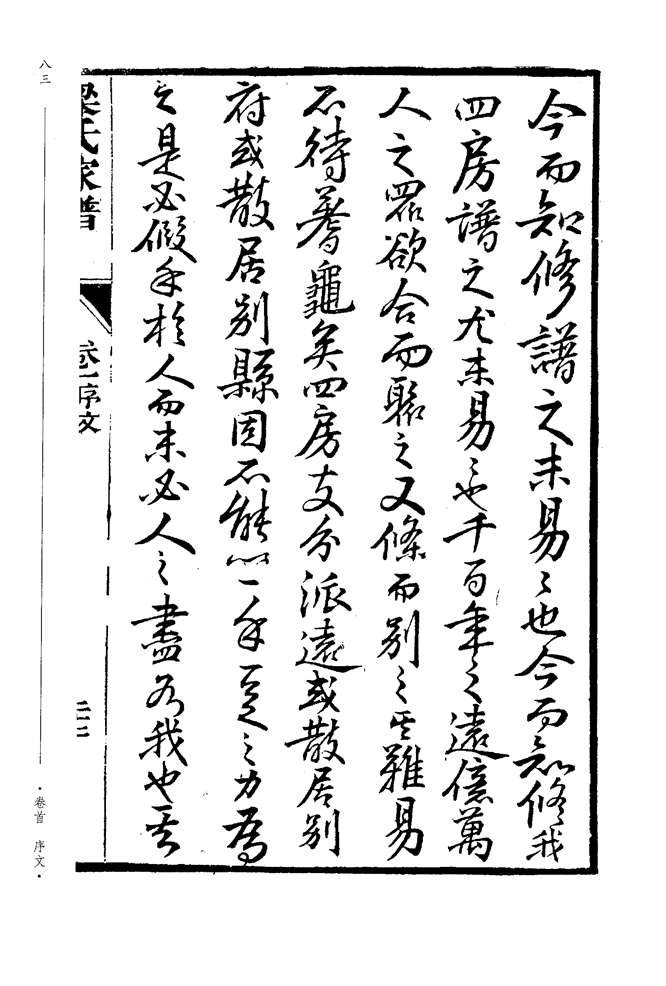 今而知修譜之未易々也今而知修我
四房譜之尤未易々也千百年之遠億萬
人之眾欲合而聚之又條而別之其難易
不待蓍龜矣四房支分派遠或散居別
府或散居別縣固不能以一手一足之力為
之是必假手於人而未必人之盡為我也吾
梁氏家譜
卷一序文
二十二
八三
·卷首 序文·